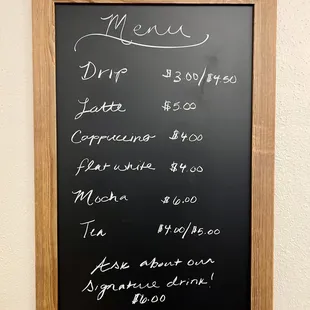 Menu
Drip $3.00/$4.50
Latte $5.00
Cappuccino $4.00
flat white $4.00
Mocha $6.00
Tea $4.00/$5.00
Ask about our
signature drink!
$6.00